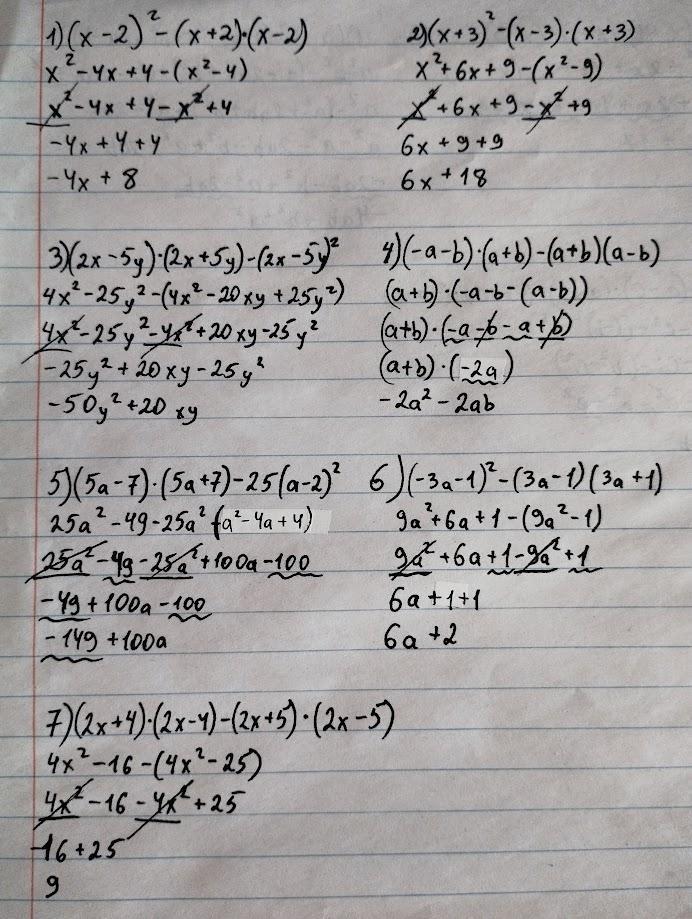 1) (x-2)²-(x+2)·(x-2)
x²-4x+4-(x²-4)
x²-4x+4-x²+4
-4x+4+4
-4x+8
2) (x+3)²-(x-3)·(x+3)
x²+6x+9-(x²-9)
x²+6x+9-x²+9
6x+9+9
6x+18
3) (2x-5y)·(2x+5y)-(2x-5y)²
4x²-25y²-(4x²-20xy+25y²)
4x²-25y²-4x²+20xy-25y²
-25y²+20xy-25y²
-50y²+20xy
4) (-a-b)·(a+b)-(a+b)(a-b)
(a+b)·(-a-b-(a-b))
(a+b)·(-a-b-a+b)
(a+b)·(-2a)
-2a²-2ab
5) (5a-7)·(5a+7)-25(a-2)²
25a²-49-25a²-(a²-4a+4)
25a²-49-25a²+100a-100
-49+100a-100
-149+100a
6) (-3a-1)²-(3a-1)(3a+1)
9a²+6a+1-(9a²-1)
9a²+6a+1-9a²+1
6a+1+1
6a+2
7) (2x+4)·(2x-4)-(2x+5)·(2x-5)
4x²-16-(4x²-25)
4x²-16-4x²+25
-16+25
9